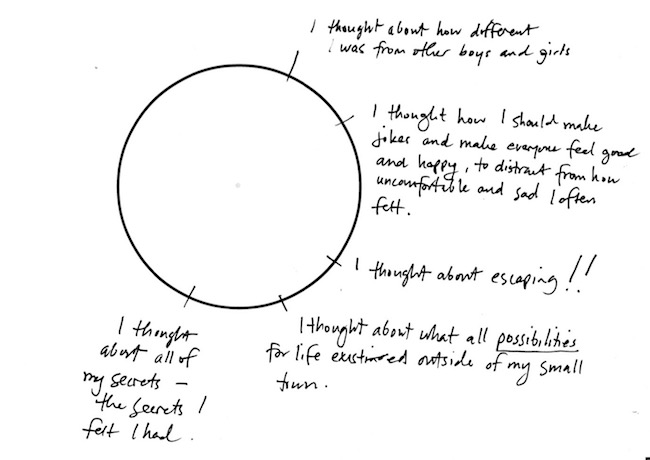 I thought about how different
I was from other boys and girls
I thought how I should make
jokes and make everyone feel good
and happy, to distract from how
uncomfortable and sad I often
felt.
I thought about escaping!!
I thought about what all possibilities
for life existed outside of my small
town.
I thought
about all of
my secrets –
the secrets I
felt I had.